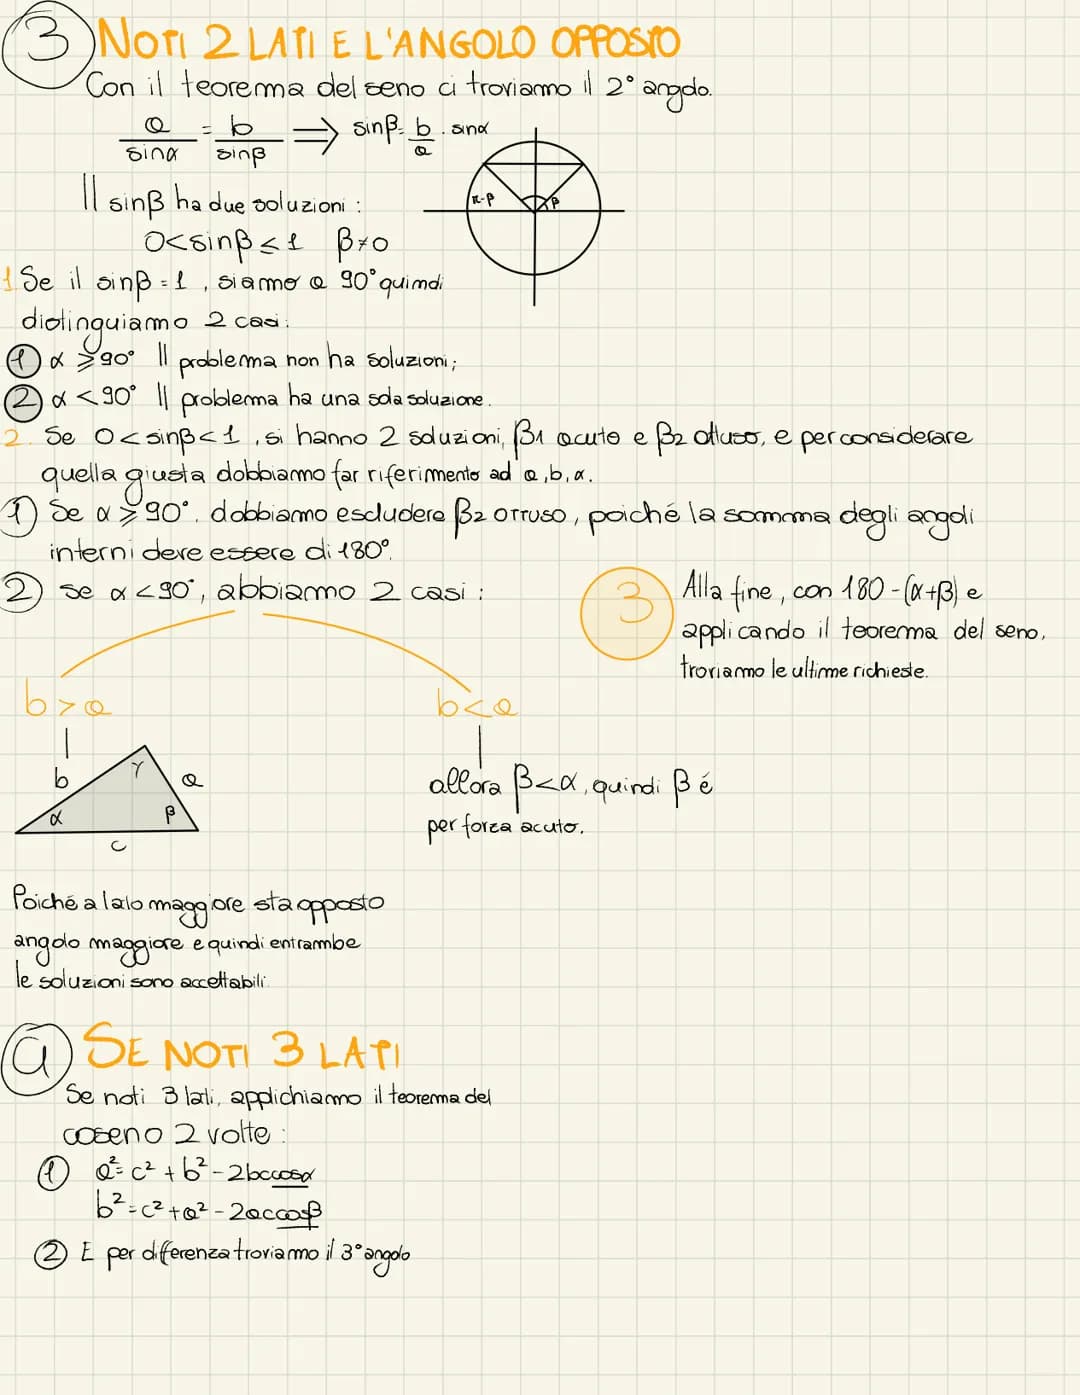 3 NOTI 2 LATI E L'ANGOLO OPPOSTO
Con il teorema del seno ci troviamo il 2° angolo.
a/sinα = b/sinβ ⟹ sinβ = b/a · sinα
π-β β
Il sinβ ha due soluzioni :
0<sinβ≤1 β≠0
1 Se il sinβ=1, siamo a 90° quindi
distinguiamo 2 casi:
1 α ⩾90° Il problema non ha soluzioni;
2 α <90° Il problema ha una sola soluzione.
2. Se 0<sinβ<1, si hanno 2 soluzioni, β1 acuto e β2 ottuso, e per considerare
quella giusta dobbiamo far riferimento ad a,b,α.
1) Se α ⩾90°, dobbiamo escludere β2 ottuso, poiché la somma degli angoli
interni deve essere di 180°.
2) se α <90°, abbiamo 2 casi :
3 Alla fine, con 180-(α+β) e
applicando il teorema del seno,
troviamo le ultime richieste.
b>a
b γ a
α β
c
Poiché a lato maggiore sta opposto
angolo maggiore e quindi entrambe
le soluzioni sono accettabili.
b<a
allora β<α, quindi β é
per forza acuto.
a) SE NOTI 3 LATI
Se noti 3 lati, applichiamo il teorema del
coseno 2 volte :
1 a²=c²+b²-2bccosα
b²=c²+a²-2accosβ
2 E per differenza troviamo il 3° angolo